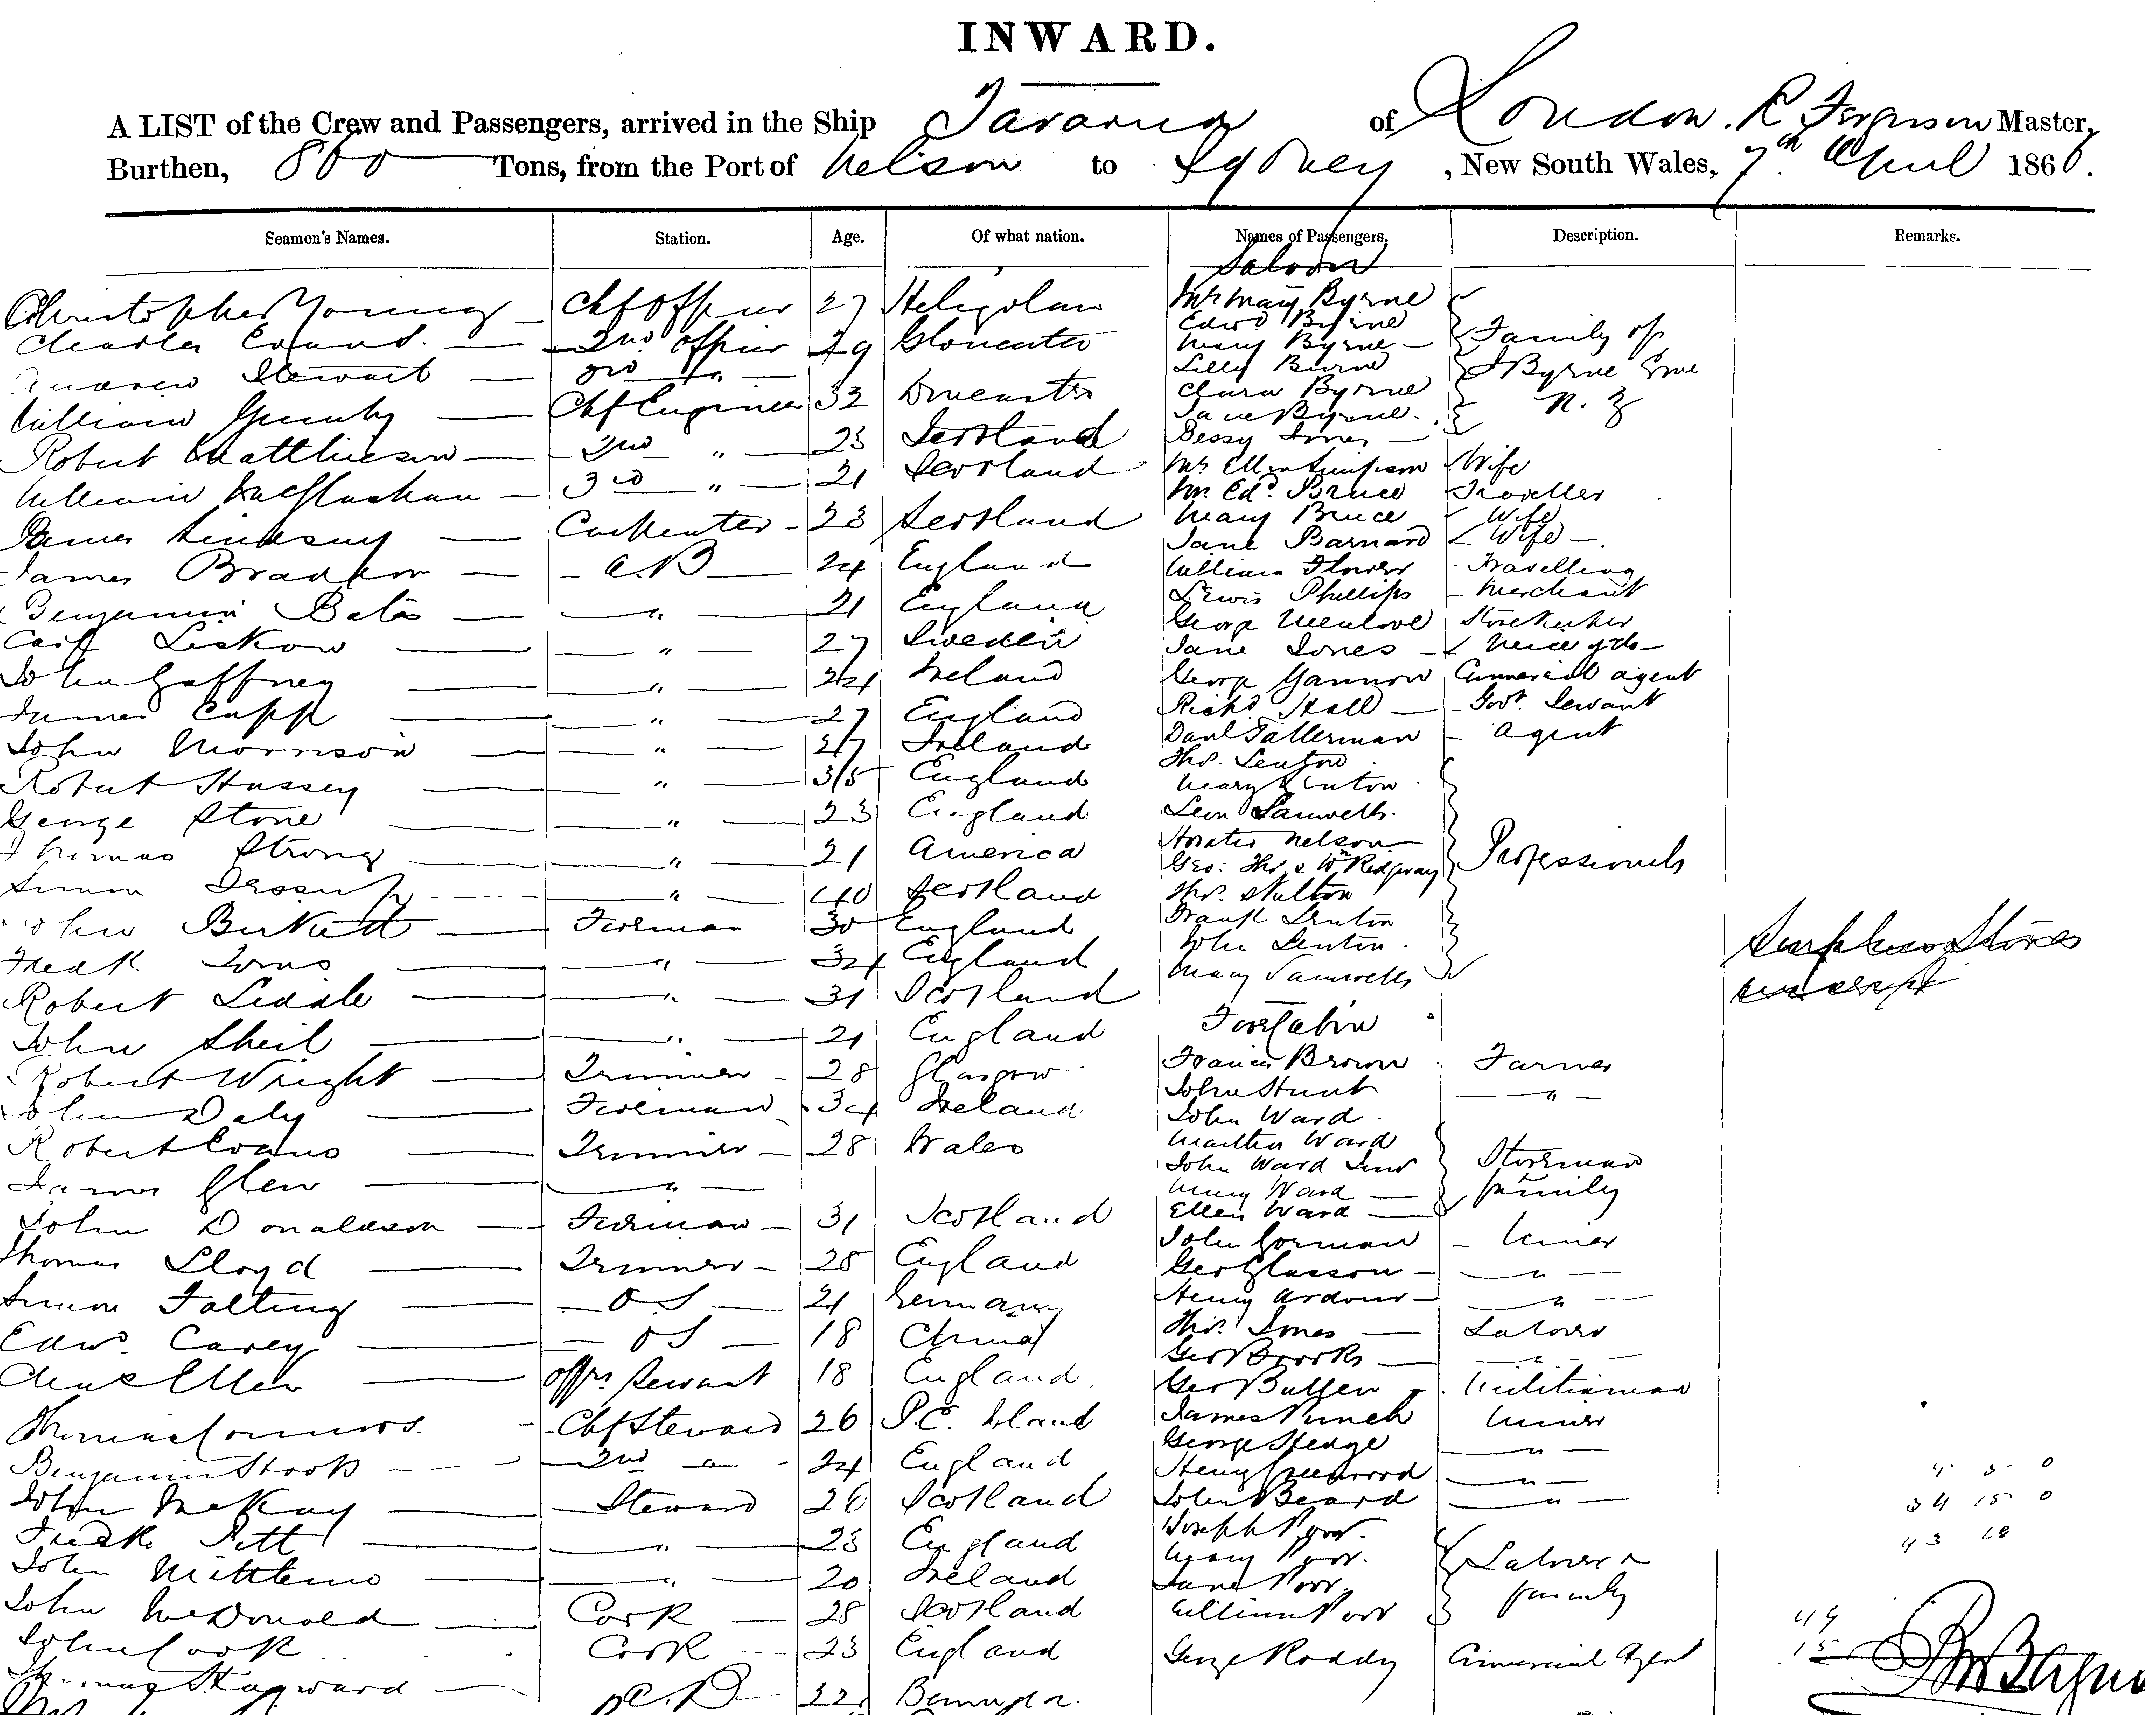 INWARD.
A LIST of the Crew and Passengers, arrived in the Ship Tararua of London. R Ferguson Master,
Burthen, 860 Tons, from the Port of Nelson to Sydney, New South Wales, 7th April 1866.
Seamen's Names. Station. Age. Of what nation. Names of Passengers. Description. Remarks.
Saloon
Christopher Young Chf Officer 27 Heligolan Mrs Mary Byrne
Edwd Byrne
Charles Evans. 2nd Officer 29 Gloucester Mary Byrne Family of
Andrew Stewart 3rd Do Lilly Byrne J Byrne
William Gumby Chf Engineer 32 Clara Byrne N. Z
Jane Byrne.
Robert Matthieson 2nd " 23 Scotland Bessy Jones
William McGlashan 3rd " 21 Scotland Mrs Ellen Simpson Wife
Mr. Edd. Bruce Traveller
James Lindsay Carpenter 23 Scotland Mary Bruce Wife
Jane Barnard Wife
James Bradford A.B 24 England William Flower Travelling
Benjamin Bate " 21 England Lewis Phillips Merchant
Carl Leskow " 27 Sweden George Storekeeper
Jane Jones Niece of do
John Gaffney " 24 Ireland George Commercial agent
James Capp " 27 England Richd Hall Govt. Servant
John Morrison " 27 Ireland Danl Tallerman Agent
Thos. Lenton
Robert Hussey " 35 England Mary Lenton
George Stone " 23 England Leon Samwells.
Thomas Strong " 21 America Horatio Nelson Professionals
Geo: Thos & Wm Ridgway
Simon " 40 Scotland Thos. Hilton
John Birkett Fireman 30 England Frank Lenton
John Lenton
Fredk " 34 England Mary Samwells
Robert Liddle " 31 Scotland
Fore Cabin
John Sheil " 21 England
Robert Wright Trimmer 28 Glasgow Francis Brown Farmer
John Daly Fireman 34 Ireland John Hunt "
John Ward
Robert Evans Trimmer 28 Wales Martha Ward
John Ward Junr Storeman
James Glen " Mary Ward family
John Donaldson Fireman 31 Scotland Ellen Ward
John Gorman Miner
Thomas Lloyd Trimmer 25 England Geo Glasson "
Simon Falting O S 21 Germany Henry "
Edwd. Carey O S 18 China Thos. Jones Labourer
Geo Brooks "
Chas Offrs. Servant 18 England Geo Bullen Militiaman
Thomas Connors Chf Steward 26 P.E. Island James Punch Miner
George Hedge "
Benjamin Strook 2nd " 24 England Henry Greenwood "
John McKay Steward 26 Scotland John Beard "
Fredk Pitt " 23 England Joseph Poor.
Mary Poor. Labourer &
John " 20 Ireland Jane Poor. family
John McDonald Cook 28 Scotland William Poor
John Cook Cook 23 England George Roddy Commercial Agent
Thomas Hayward 22 Bermuda.
Surplus Stores
4 5 0
34 15 0
43 18
49
15